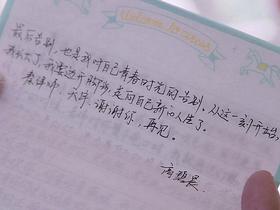 最后告别，也是我对自己青春时光的告别。从这一刻开始，
我长大了，我要迈开脚步，走向自己新的人生了。
秦律师，天宇，谢谢你，再见。